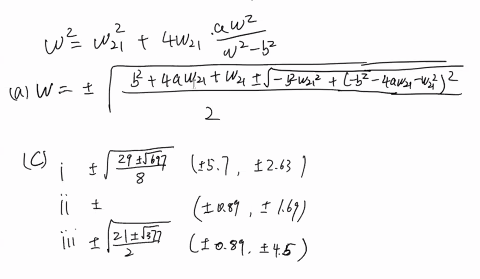 w² = w₂₁² + 4w₂₁ · aw²/(w²-b²)
(a) w = ± √((b² + 4aw₂₁ + w₂₁ ± √(-b²w₂₁² + (-b²-4aw₂₁-w₂₁²)²))/2)
(C) i ± √((29±√697)/8) (±5.7, ±2.63)
ii ± (±0.89, ±1.69)
iii ± √((21±√377)/2) (±0.89, ±4.5)